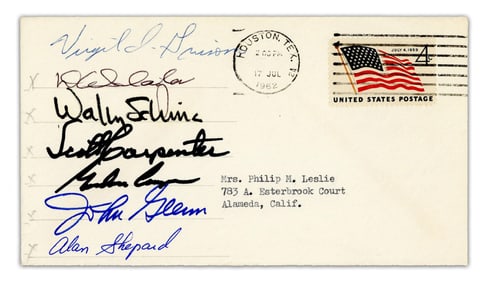 Virgil I. Grissom
D K Slayton
Wally Schirra
Scott Carpenter
Gordon Cooper
John Glenn
Alan Shepard
HOUSTON, TEX.
17 JUL
1962
JULY 4, 1960
4¢
UNITED STATES POSTAGE
Mrs. Philip M. Leslie
783 A. Esterbrook Court
Alameda, Calif.